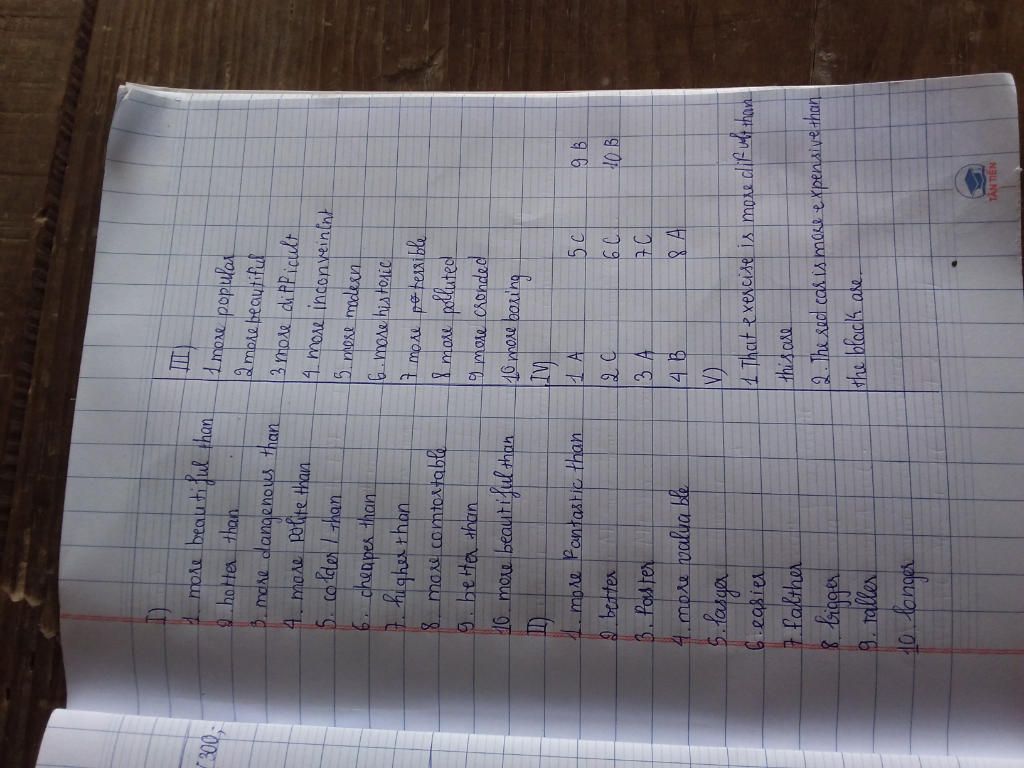 I)
1. more beautiful than
2 hotter than
3. more dangenous than
4. more polite than
5. colder / than
6. cheaper than
7. higher than
8. more comfortable
9. better than
10. more beautiful than
II)
1. more Fantastic than
2. better
3. Faster
4. more valuable
5. larger
6. easier
7. Farther
8. bigger
9. taller
10. longer
III)
1 more popular
2 more beautiful
3 more difficult
4. more inconveinent
5. more modern
6. more historic
7 more terrible
8 more polluted
9 more cronded
10 more boring
IV)
1 A 5 C 9 B
2 C 6 C 10 B
3 A 7 C
4 B 8 A
V)
1. That exercise is more than
this are
2. The red car is more expensive than
the black are.
TÂN TIẾN
300,-